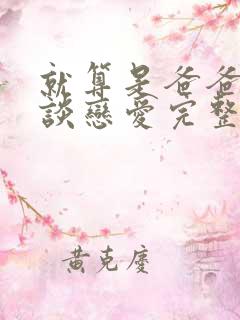 就算是爸爸
談戀愛完整
黃克慶